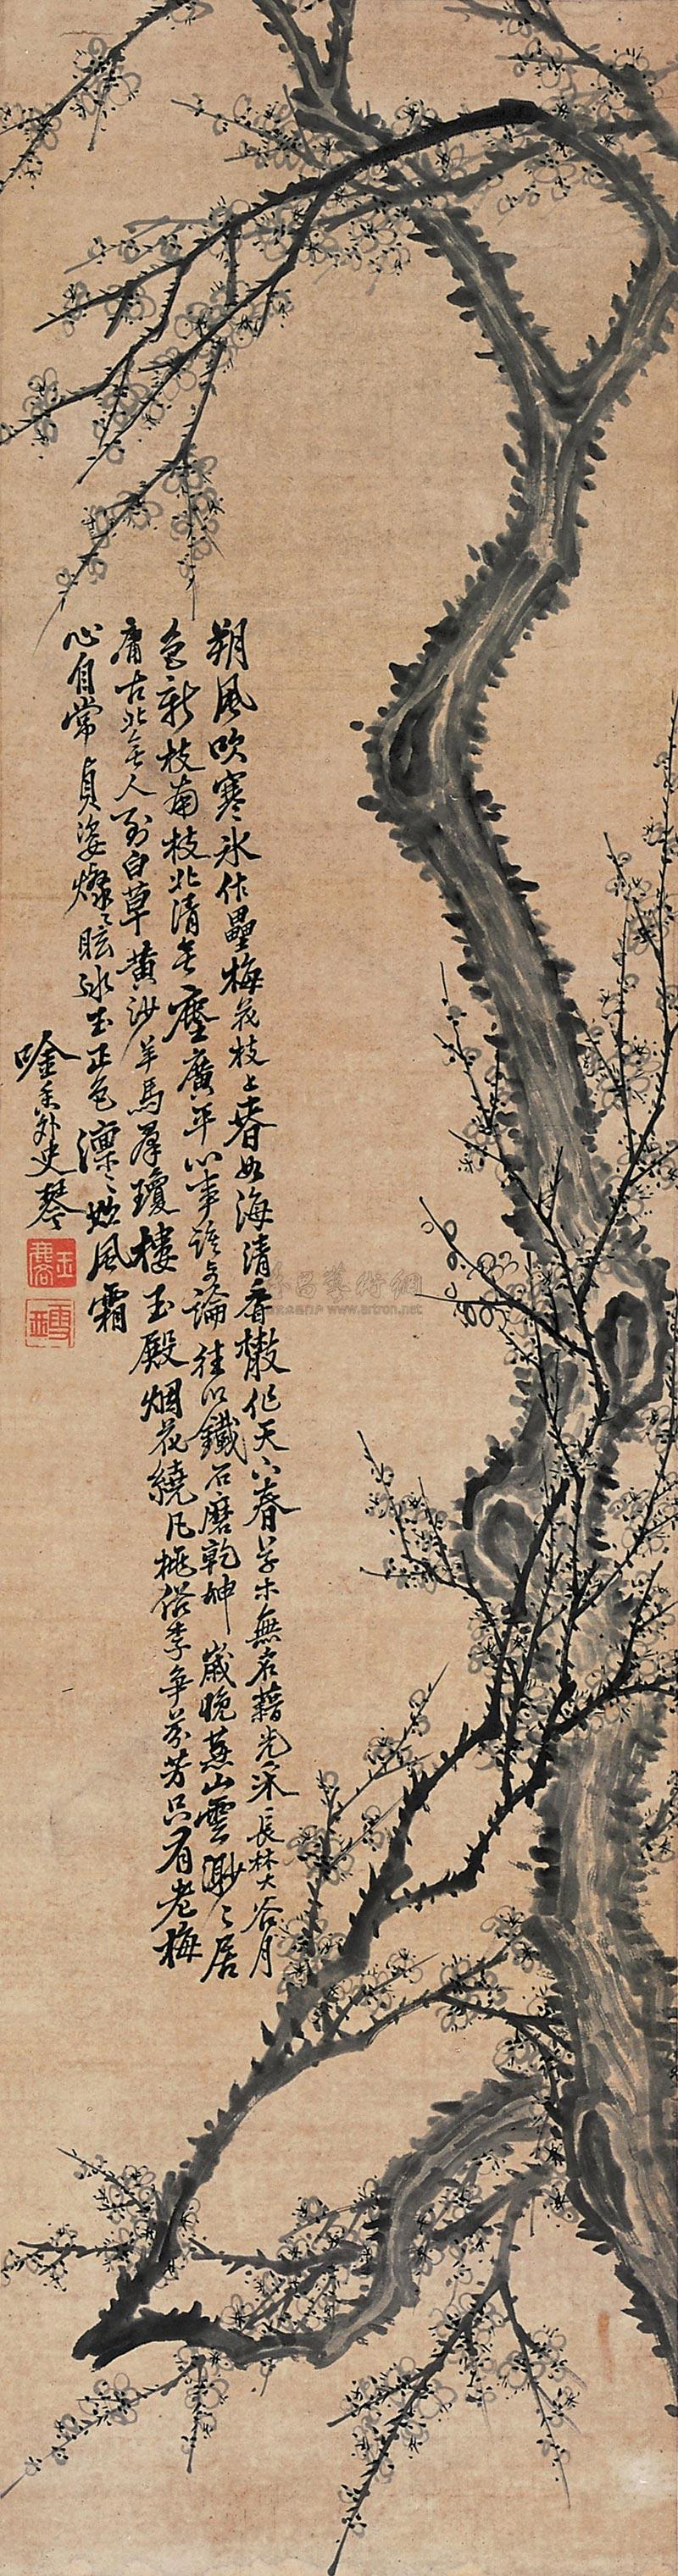 朔風吹寒冰作壘梅花枝上春如海清香散作天下春草木無名藉光采長林大谷月
色新枝南枝北清無塵廣平心事誰與論徒以鐵石磨乾坤歲晚燕山雲渺々居
庸古北無人到白草黄沙羊馬群瓊樓玉殿烟花繞凡桃俗李争芬芳只有老梅
心自常貞姿燦々眩冰玉正色凛々欺風霜
外史琴
www.artron.net